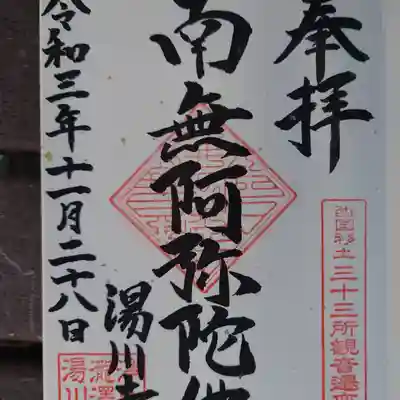 奉拝
三十三所観音霊
南無阿弥陀佛
湯川寺
令和三年十一月二十八日
瀧澤
湯川